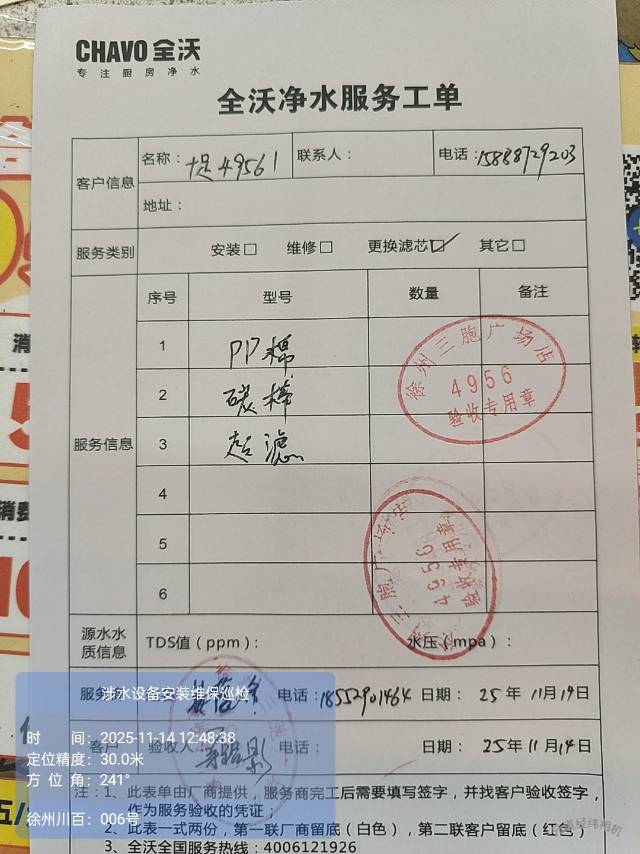 CHAVO 全沃
专注厨房净水
全沃净水服务工单
客户信息 名称： 49561 联系人： 电话：15838729203
地址：
服务类别 安装□ 维修□ 更换滤芯☑ 其它□
服务信息 序号 型号 数量 备注
1 PP棉
2 碳棒
3 超滤
4
5
6
徐州三胞广场店
4956
验收专用章
4956
验收专用章
源水水质信息 TDS值（ppm）： 水压（mpa）：
电话：18552901464 日期：25年11月19日
客户 验收人 电话： 日期：25年11月14日
涉水设备安装维保巡检
时 间：2025-11-14 12:48:38
定位精度：30.0米
方 位 角：241°
徐州川百：006号
注：1、此表单由厂商提供，服务商完工后需要填写签字，并找客户验收签字，
作为服务验收的凭证；
2、此表一式两份，第一联厂商留底（白色），第二联客户留底（红色）
3、全沃全国服务热线：4006121926